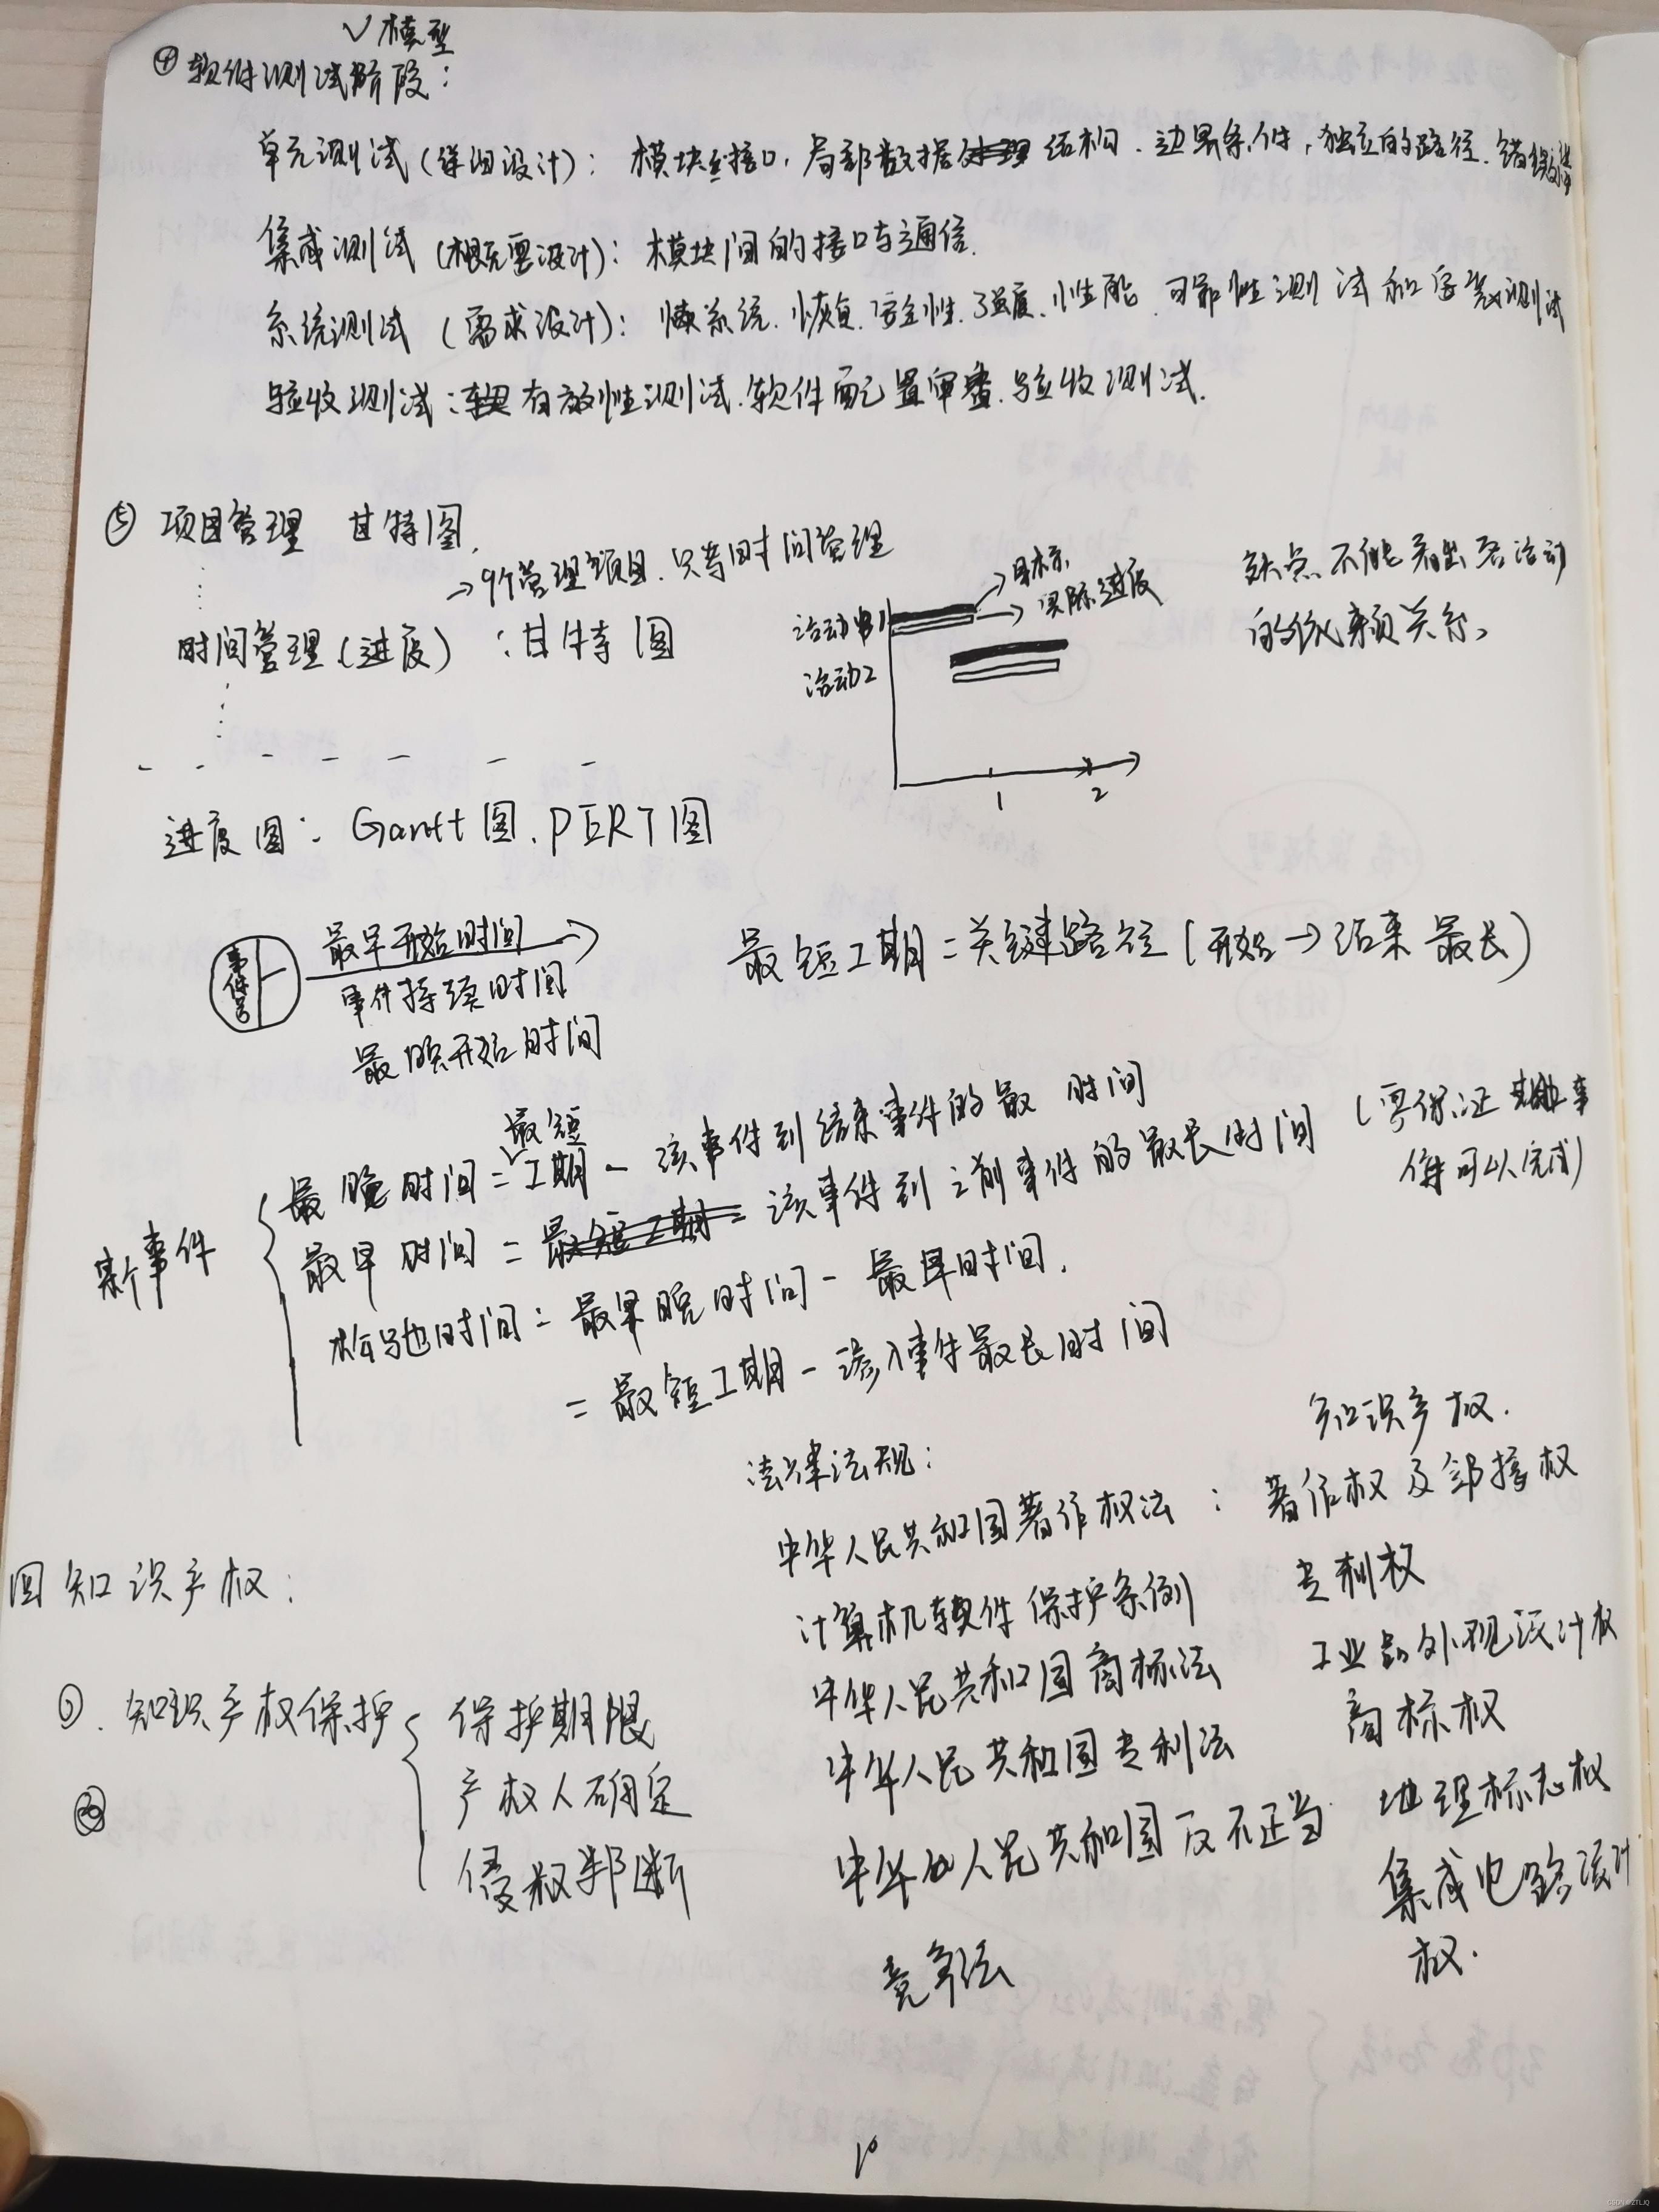 V模型
④ 软件测试阶段：
单元测试（详细设计）：模块接口，局部数据结构、边界条件，独立的路径、错误
集成测试（概要设计）：模块间的接口与通信.
系统测试（需求设计）：系统、恢复、安全性、强度、性能、可靠性测试和安装测试
验收测试：有效性测试、软件配置审查、验收测试.
⑤ 项目管理 甘特图.
→9个管理项目、只考时间管理
时间管理（进度）：甘特图
→目标
→实际进度
活动1
活动2
1
2
缺点 不能看出各活动
的依赖关系、
进度图： Gantt图、PERT图
事件号
最早开始时间
事件持续时间
最晚开始时间
最短工期＝关键路径（开始→结束 最长）
某个事件
最晚时间＝最短工期－该事件到结束事件的最 时间
最早时间＝该事件到之前事件的最长时间（要保证 事
件可以完成）
松弛时间＝最晚时间－最早时间.
＝最短工期－该事件最长时间
四 知识产权：
①、知识产权保护
保护期限
产权人确定
侵权判断
②
法律法规：
中华人民共和国著作权法：
计算机软件保护条例
中华人民共和国商标法
中华人民共和国专利法
中华人民共和国反不正当
竞争法
知识产权.
著作权及邻接权
专利权
工业品外观设计权
商标权
地理标志权
集成电路设计
权.
10
CSDN @ZTLJQ